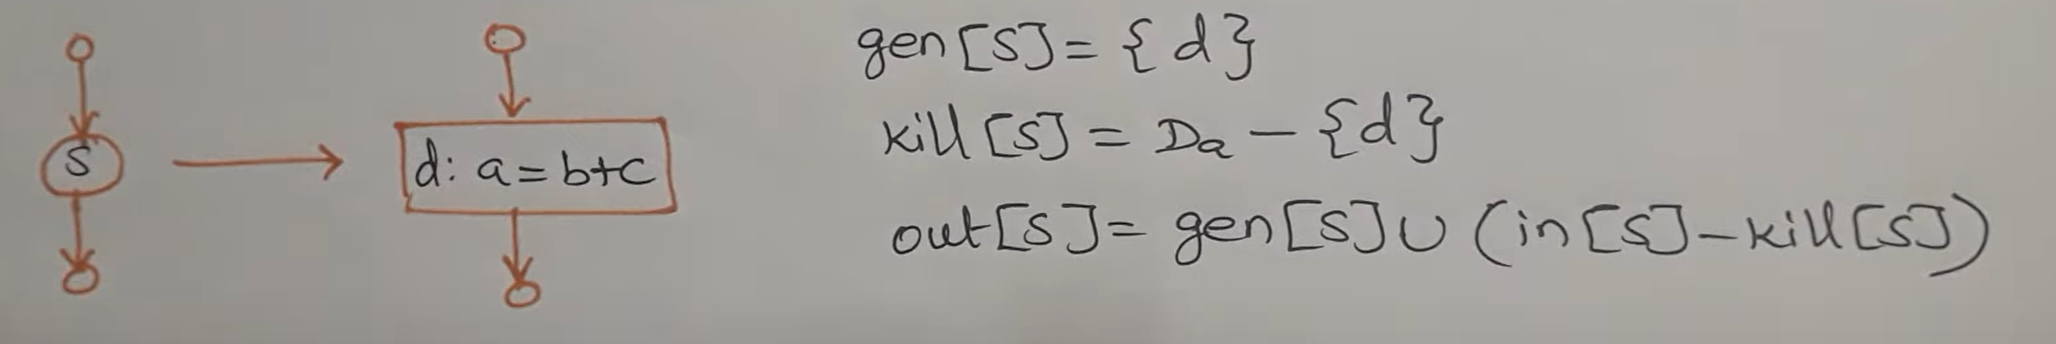 S
d: a = b+c
gen[S] = {d}
kill[S] = Da - {d}
out[S] = gen[S] ∪ (in[S] - kill[S])